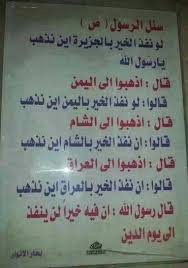 سئل الرسول ( ص )
لو نفذ الخير بالجزيرة اين نذهب
يارسول الله
قال : اذهبوا الى اليمن
قالوا : لو نفذ الخير باليمن اين نذهب
قال : اذهبوا الى الشام
قالوا : ان نفذ الخير بالشام اين نذهب
قال : اذهبوا الى العراق
قالوا : ان نفذ الخير بالعراق اين نذهب
قال رسول الله : ان فيه خيراً لن ينفذ
الى يوم الدين
بحار الانوار